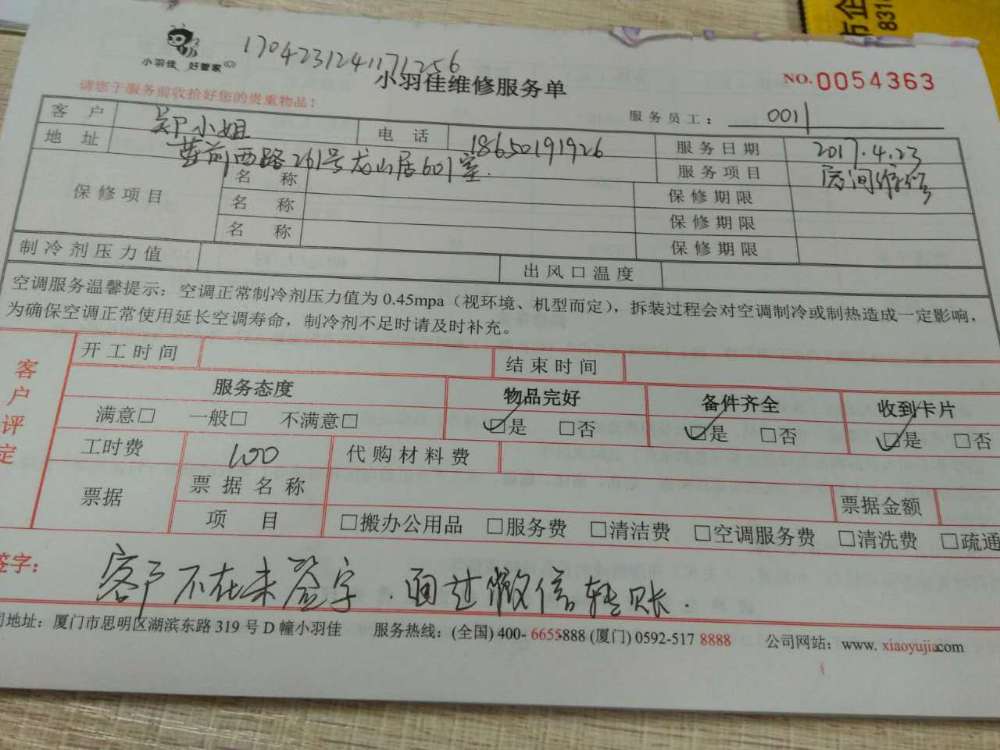 市企
8318
小羽佳 好管家
1704231241171256
小羽佳维修服务单
NO.0054363
请您于服务前收拾好您的贵重物品!
服务员工: 0011
客户 郑小姐 电话 18650191926 服务日期 2017.4.23
地址 莆前西路261号龙山居601室. 服务项目 房间维修
保修项目 名称 保修期限
名称 保修期限
名称 保修期限
制冷剂压力值 出风口温度
空调服务温馨提示:空调正常制冷剂压力值为 0.45mpa(视环境、机型而定),拆装过程会对空调制冷或制热造成一定影响,
为确保空调正常使用延长空调寿命,制冷剂不足时请及时补充。
客户评定
开工时间 结束时间
服务态度 物品完好 备件齐全 收到卡片
满意□ 一般□ 不满意□ ☑是 □否 ☑是 □否 ☑是 □否
工时费 100 代购材料费
票据 票据名称 票据金额
项目 □搬办公用品 □服务费 □清洁费 □空调服务费 □清洗费 □疏通
签字: 客户不在未签字.通过微信转账.
司地址:厦门市思明区湖滨东路 319 号 D 幢小羽佳 服务热线:(全国) 400- 6655888 (厦门) 0592-517 8888 公司网站:www. xiaoyujia.com